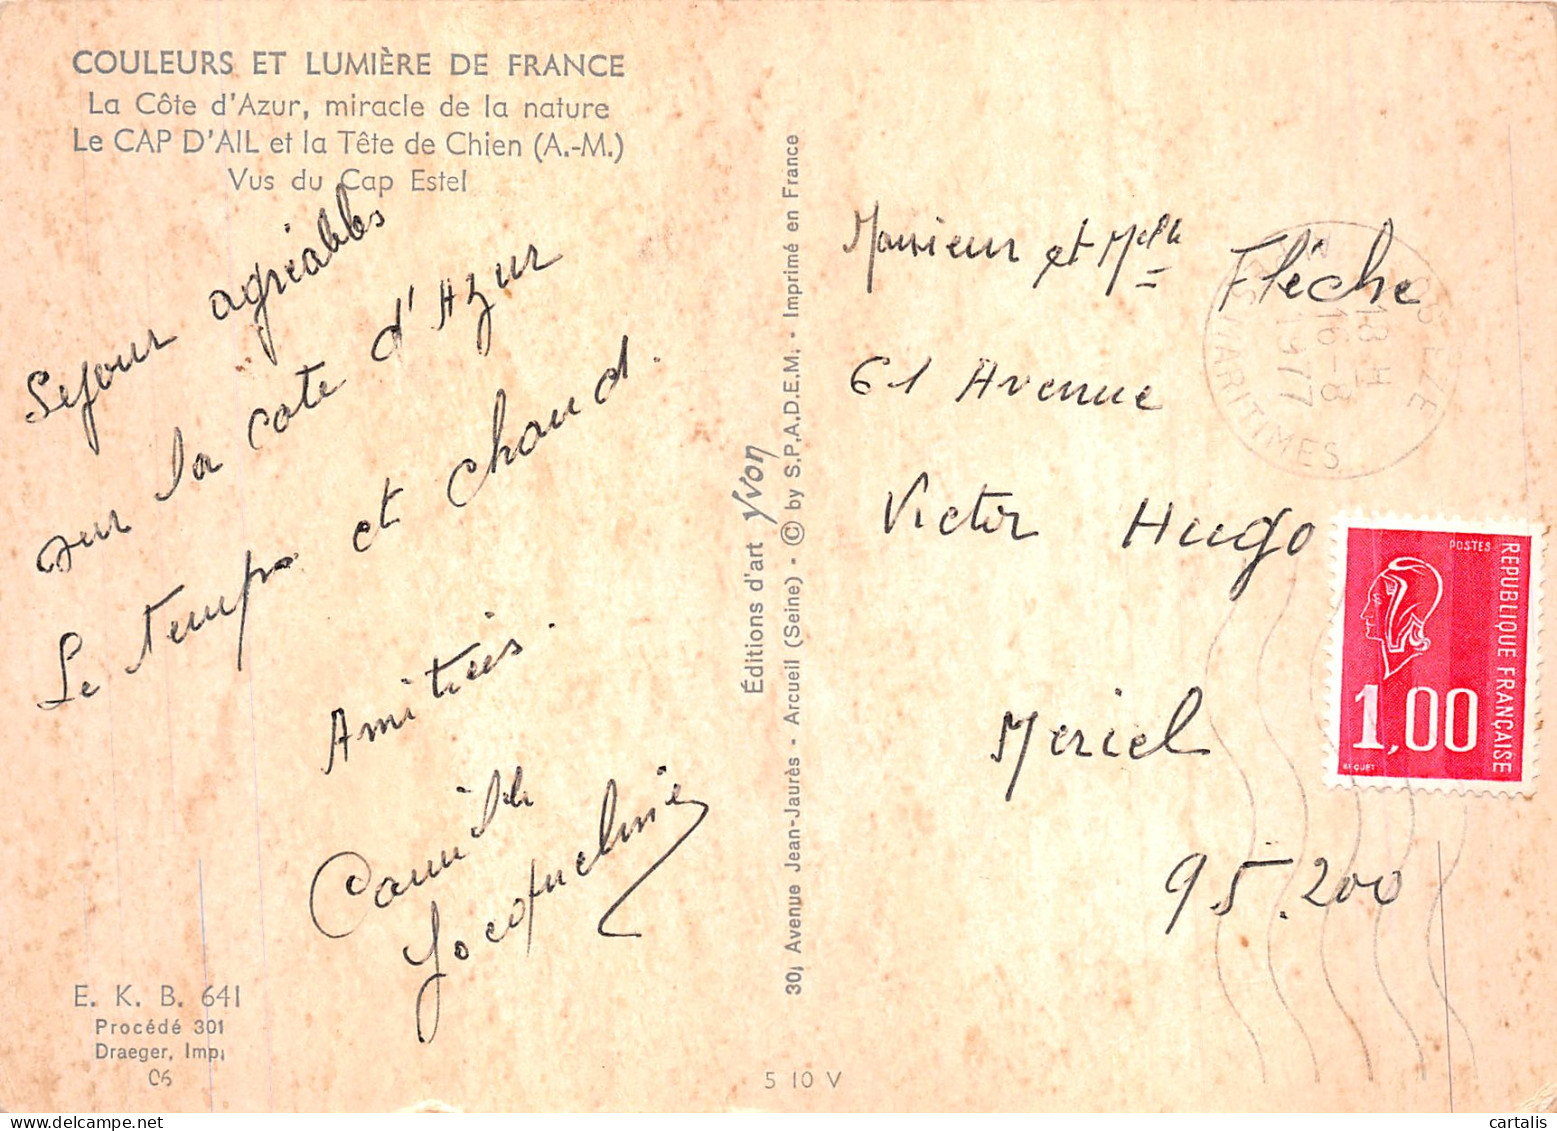 COULEURS ET LUMIÈRE DE FRANCE
La Côte d'Azur, miracle de la nature
Le CAP D'AIL et la Tête de Chien (A.-M.)
Vus du Cap Estel
Sejour agréables
sur la cote d'Azur
Le temps et chaud.
Amitiés.
Camille
Jacqueline
E. K. B. 641
Procédé 301
Draeger, Imp.
06
Éditions d'art yvon
30, Avenue Jean-Jaurès - Arcueil (Seine) - © by S.P.A.D.E.M. - Imprimé en France
5 10 V
Monsieur et Melle Flêche
61 Avenue
Victor Hugo
Meriel
95.200
06 EZE
18 H
16-8
1977
MARITIMES
POSTES
REPUBLIQUE FRANÇAISE
1,00
BEQUET
cartalis